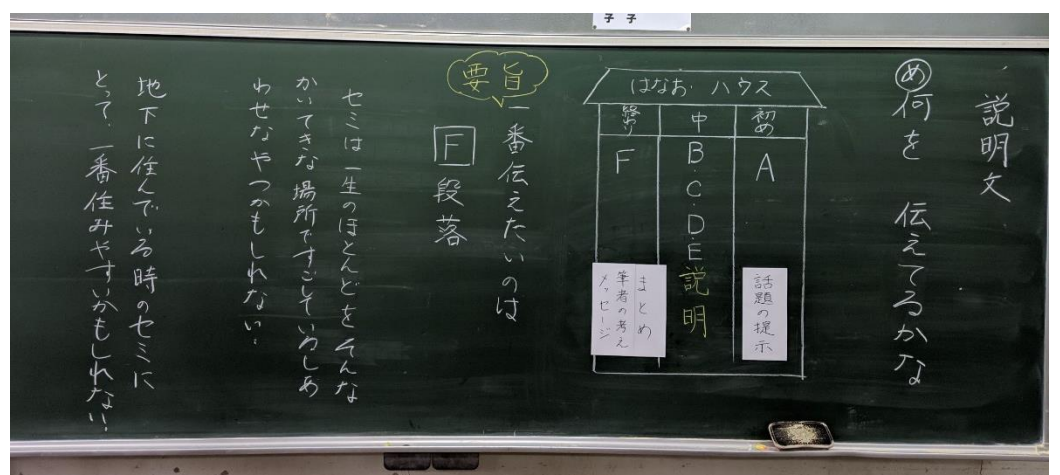 子 子
説明文
め 何を 伝えてるかな
はなお・ハウス
初め
A
話題の提示
中
B・C・D・E
説明
終わり
F
まとめ
筆者の考え
メッセージ
要旨
一番伝えたいのは
F 段落
セミは一生のほとんどをそんな
かいてきな場所ですごしているしあ
わせなやつかもしれない。
地下に住んでいる時のセミに
とって、一番住みやすいかもしれない。